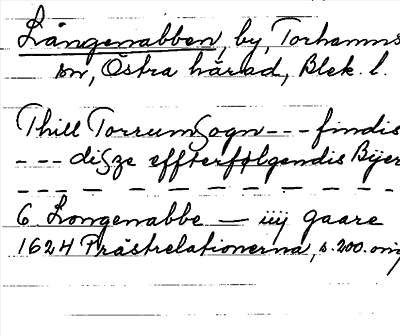 Långenabben, by, Torhamns
sn, Östra härad, Blek. l.
Thill Torrum Sogn --- findis
--- disze effterfølgendis Bÿer
--- — — — — — — —
6 Longenabbe — iiij gaare
1624 Prästrelationerna, s. 200. orig